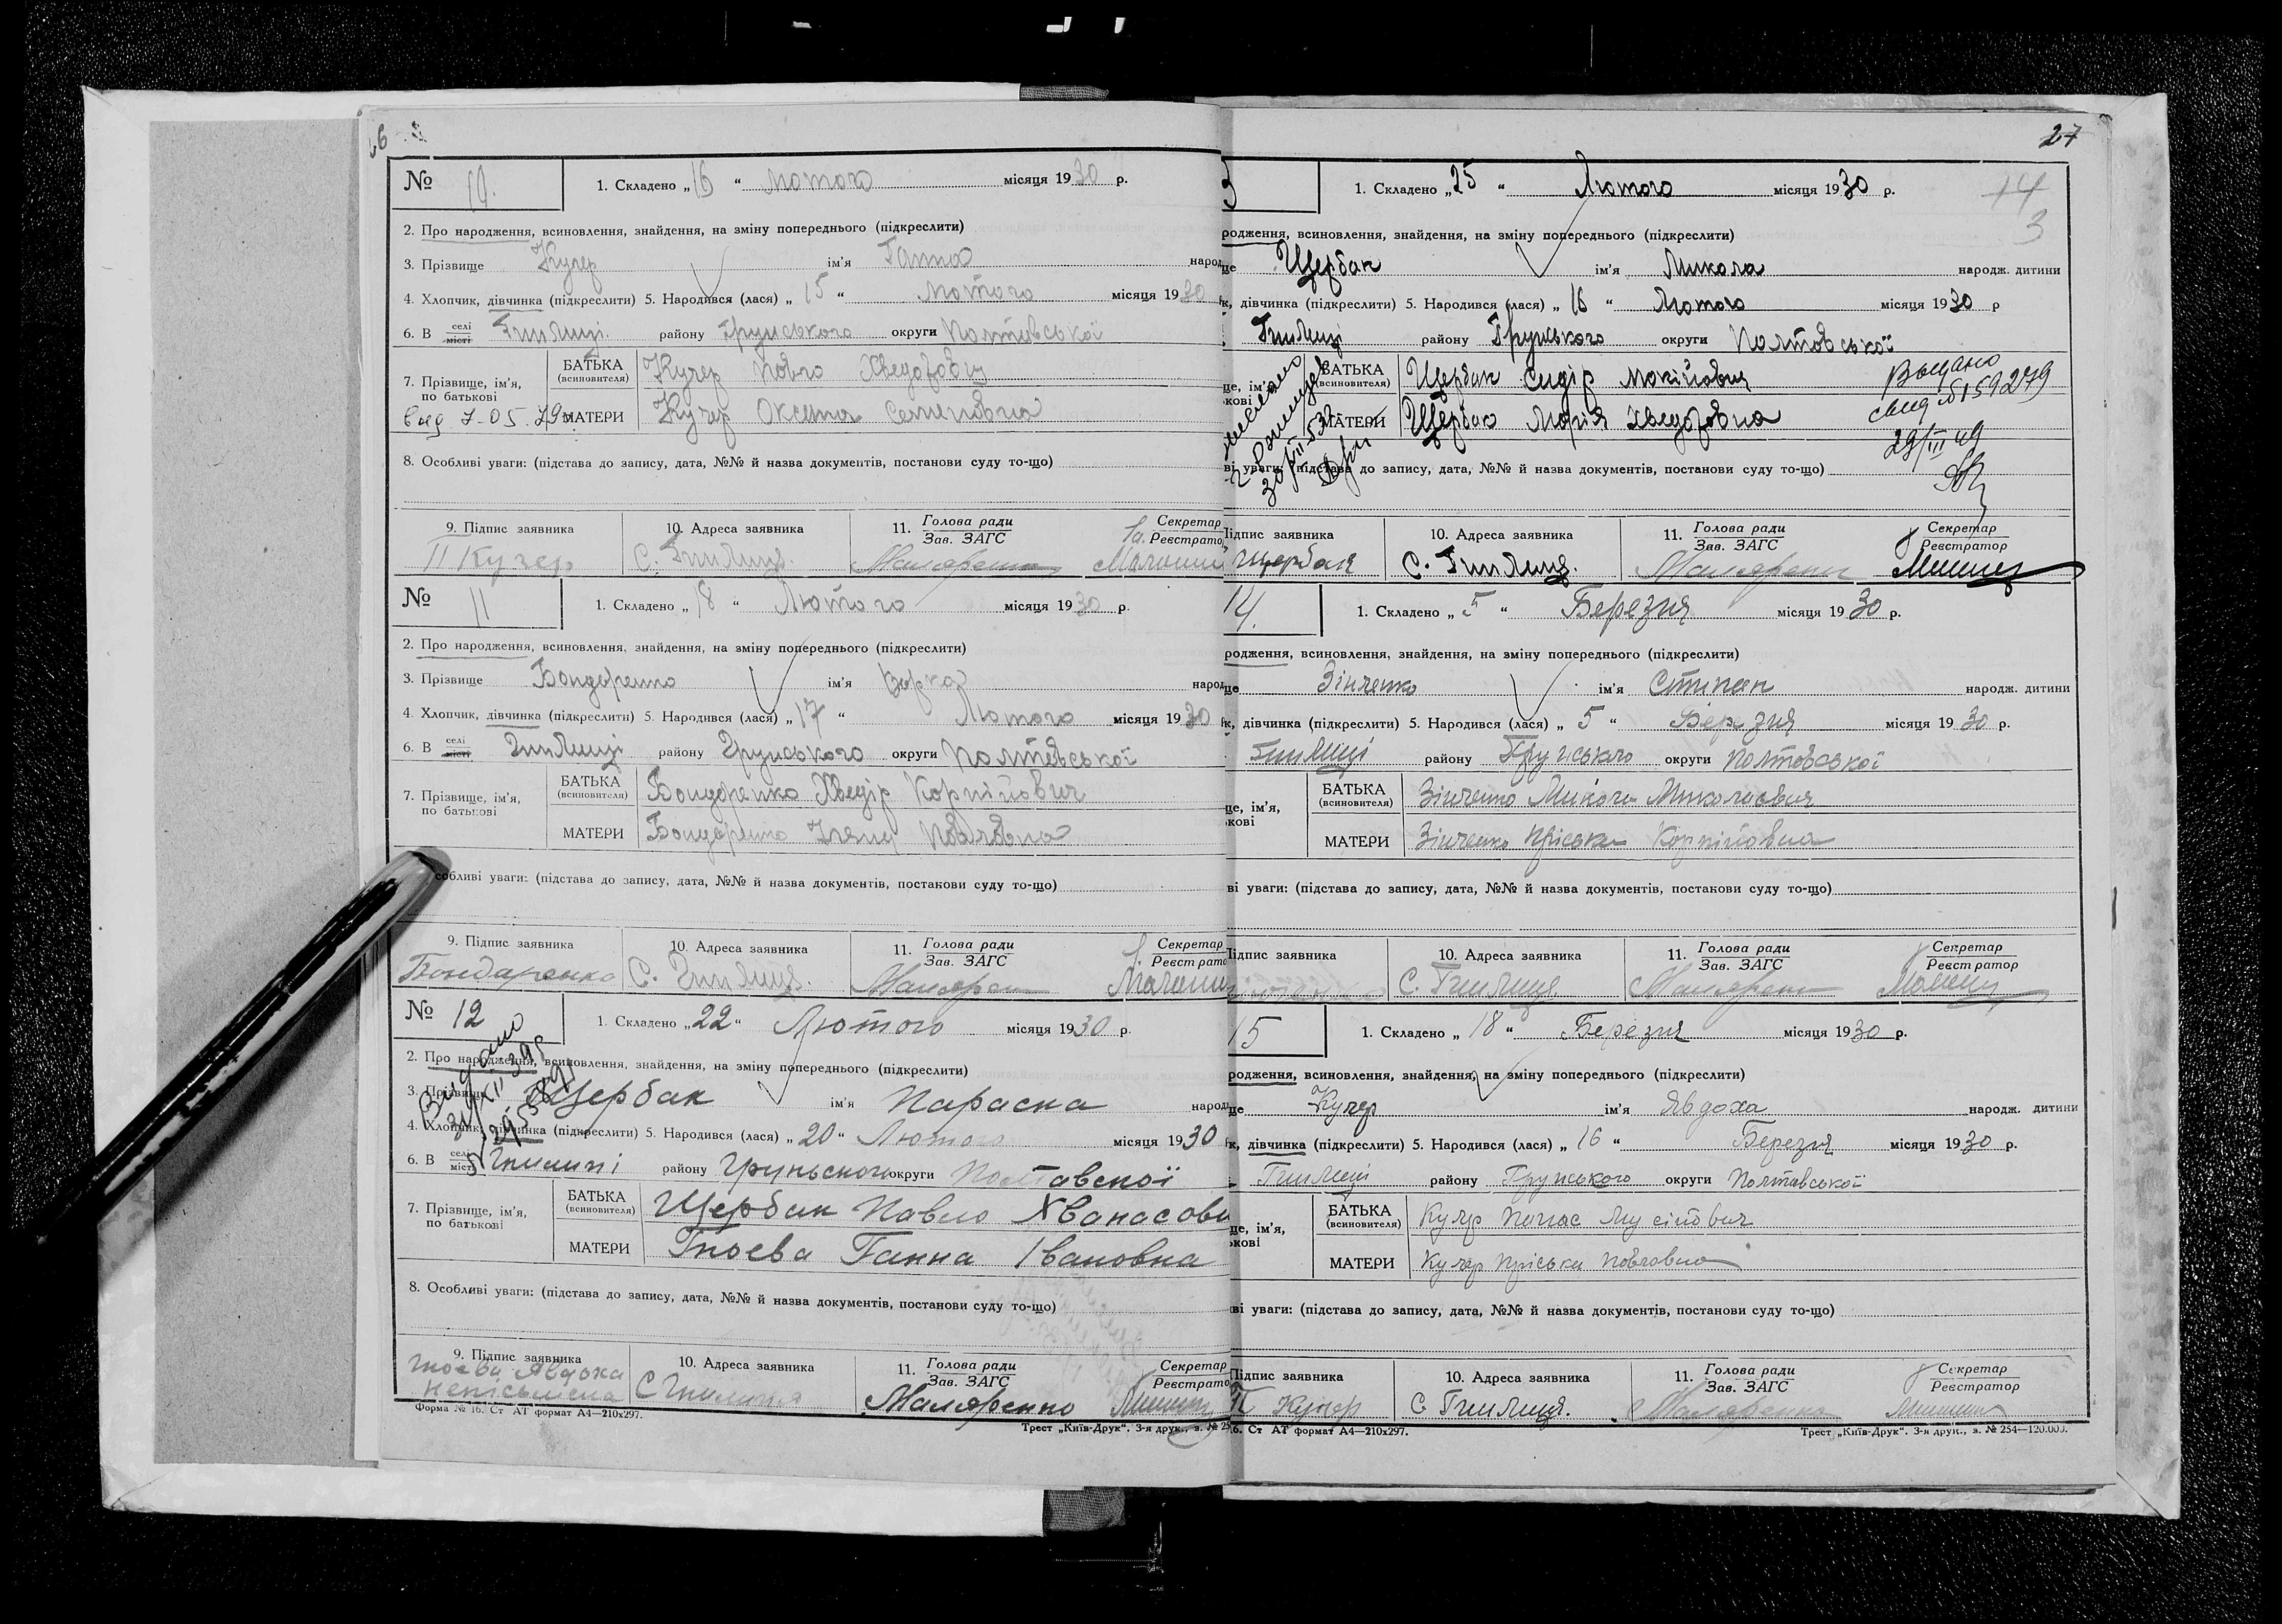 № 10. 1. Складено „16“ Лютого місяця 1930 р.
2. Про народження, всиновлення, знайдення, на зміну попереднього (підкреслити)
3. Прізвище Кучер ім'я Ганна народ
4. Хлопчик, дівчинка (підкреслити) 5. Народився (лася) „15“ Лютого місяця 1930
6. В селі місті Гнилиці району Грунського округи Полтавської
7. Прізвище, ім'я, по батькові
БАТЬКА (всиновителя) Кучер Павло Хведорович
МАТЕРИ Кучер Оксана Семенівна
8. Особливі уваги: (підстава до запису, дата, №№ й назва документів, постанови суду то-що)
9. Підпис заявника 10. Адреса заявника 11. Голова ради Зав. ЗАГС Секретар Реєстрато
П Кучер С. Гнилиця. Маляренко
№ 11 1. Складено „18“ Лютого місяця 1930 р.
2. Про народження, всиновлення, знайдення, на зміну попереднього (підкреслити)
3. Прізвище Бондаренко ім'я Варка народ
4. Хлопчик, дівчинка (підкреслити) 5. Народився (лася) „17“ Лютого місяця 1930
6. В селі місті Гнилиці району Грунського округи Полтавської
7. Прізвище, ім'я, по батькові
БАТЬКА (всиновителя) Бондаренко Хведір Корнійович
МАТЕРИ Бондаренко Павлівна
собливі уваги: (підстава до запису, дата, №№ й назва документів, постанови суду то-що)
9. Підпис заявника 10. Адреса заявника 11. Голова ради Зав. ЗАГС Секретар Реєстрато
Бондаренко С. Гнилиця. Маляренко
№ 12 1. Складено „22“ Лютого місяця 1930 р.
2. Про народження, всиновлення, знайдення, на зміну попереднього (підкреслити)
3. Прізвище Щербак ім'я Параска народ
4. Хлопчик, дівчинка (підкреслити) 5. Народився (лася) „20“ Лютого місяця 1930
6. В селі місті Гнилиці району Груньского округи Полтавскої
7. Прізвище, ім'я, по батькові
БАТЬКА (всиновителя) Щербак Павло Хванасови
МАТЕРИ Гноєва Ганна Івановна
8. Особливі уваги: (підстава до запису, дата, №№ й назва документів, постанови суду то-що)
9. Підпис заявника 10. Адреса заявника 11. Голова ради Зав. ЗАГС Секретар Реєстрато
Гноєва Явдоха С Гнилиця Маляренко
неписьмена
Форма № 16. Ст АТ формат А4—210х297.
Трест „Київ-Друк“. 3-я друк., з. № 25
27
1. Складено „25“ Лютого місяця 1930 р.
14
3
родження, всиновлення, знайдення, на зміну попереднього (підкреслити)
ще Щербак ім'я Микола народж. дитини
к, дівчинка (підкреслити) 5. Народився (лася) „16“ Лютого місяця 1930 р
Гнилиці району Грунського округи Полтавської
ще, ім'я, кові
БАТЬКА (всиновителя) Щербак Сидір Мокійович
МАТЕРИ Щербак Марія Хведоровна
29/III 49
ві уваги: (підстава до запису, дата, №№ й назва документів, постанови суду то-що)
Підпис заявника 10. Адреса заявника 11. Голова ради Зав. ЗАГС Секретар Реєстратор
Щербак С. Гнилиця. Маляренко
14. 1. Складено „5“ Березня місяця 1930 р.
родження, всиновлення, знайдення, на зміну попереднього (підкреслити)
ще Зінченко ім'я Степан народж. дитини
к, дівчинка (підкреслити) 5. Народився (лася) „5“ Березня місяця 1930 р.
Гнилиці району Грунського округи Полтавської
ще, ім'я, кові
БАТЬКА (всиновителя) Зінченко Микола Миколаєвич
МАТЕРИ Зінченко Пріська Корнійовна
ві уваги: (підстава до запису, дата, №№ й назва документів, постанови суду то-що)
Підпис заявника 10. Адреса заявника 11. Голова ради Зав. ЗАГС Секретар Реєстратор
С. Гнилиця Маляренко
15 1. Складено „18“ Березня місяця 1930 р.
родження, всиновлення, знайдення, на зміну попереднього (підкреслити)
ще Кучер ім'я Явдоха народж. дитини
к, дівчинка (підкреслити) 5. Народився (лася) „16“ Березня місяця 1930 р.
Гнилиці району Грунського округи Полтавської
ще, ім'я, кові
БАТЬКА (всиновителя) Кучер Панас Мусійович
МАТЕРИ Кучер Пріська Павловна
ві уваги: (підстава до запису, дата, №№ й назва документів, постанови суду то-що)
Підпис заявника 10. Адреса заявника 11. Голова ради Зав. ЗАГС Секретар Реєстратор
П Кучер С. Гнилиця. Маляренко
6. Ст АТ формат А4—210х297.
Трест „Київ-Друк“. 3-я друк., з. № 254—120.000.